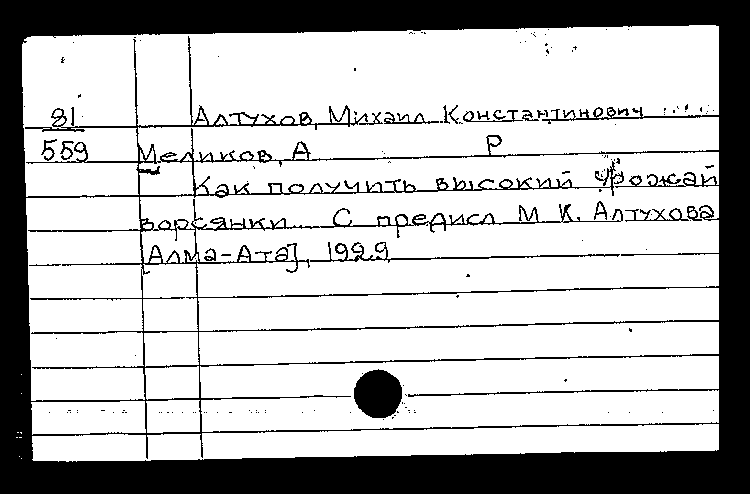 81 Алтухов, Михаил Константинович
559 Меликов, А Р
Как получить высокий урожай
ворсянки. С предисл М К. Алтухова
[Алма-Ата], 1929